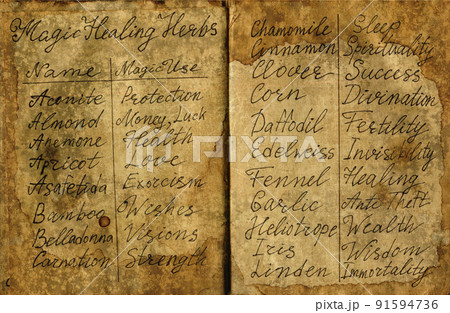 Magic Healing Herbs
Name Magic Use
Aconite Protection
Almond Money, Luck
Anemone Health
Apricot Love
Asafetida Exorcism
Bamboo Wishes
Belladonna Visions
Carnation Strength
Chamomile Sleep
Cennamon Spirituality
Clover Success
Corn Divination
Daffodil Fertility
Edelweiss Invisibility
Fennel Healing
Garlic Ante Theft
Heliotrope Wealth
Iris Wisdom
Linden Immortality
PIXTA
pixta.jp - 91594736